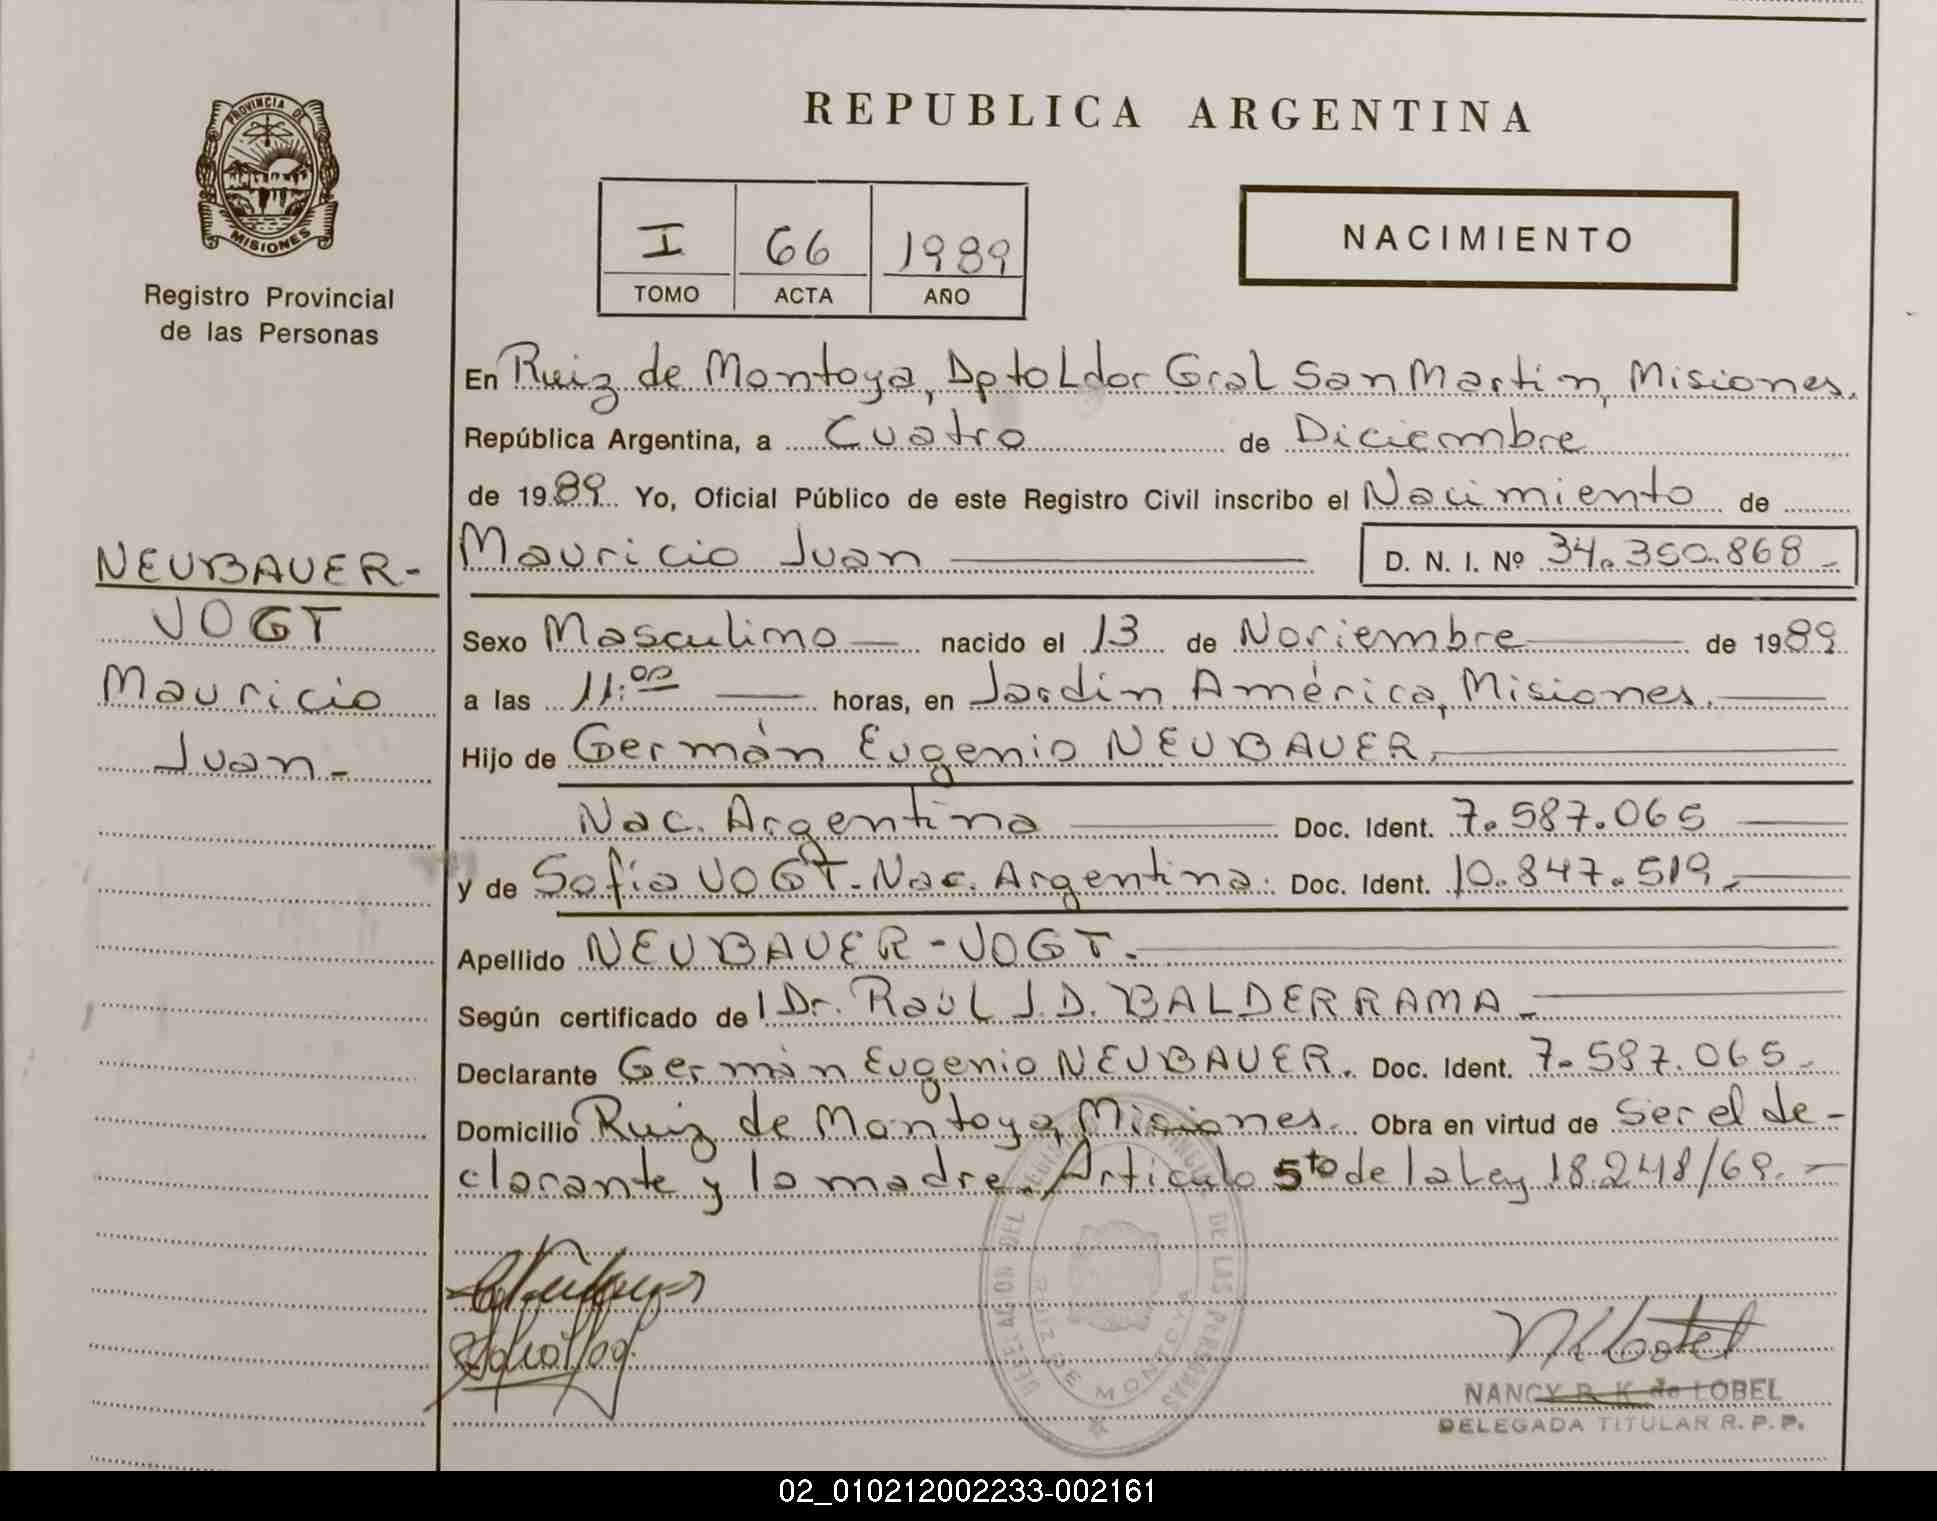 PROVINCIA DE
MISIONES
Registro Provincial
de las Personas
NEUBAUER-
VOGT
Mauricio
Juan-
REPUBLICA ARGENTINA
I 66 1989
TOMO ACTA AÑO
NACIMIENTO
En Ruiz de Montoya, Dpto Ldor Gral San Martín, Misiones.
República Argentina, a Cuatro de Diciembre
de 1989 Yo, Oficial Público de este Registro Civil inscribo el Nacimiento de
Mauricio Juan D. N. I. Nº 34.350.868-
Sexo Masculino nacido el 13 de Noviembre de 1989
a las 11:00 horas, en Jardín América, Misiones.
Hijo de Germán Eugenio NEUBAUER.
Nac. Argentina Doc. Ident. 7.587.065
y de Sofía VOGT. Nac. Argentina. Doc. Ident. 10.847.519.-
Apellido NEUBAUER-VOGT.
Según certificado de Dr. Raúl J.D. BALDERRAMA.
Declarante Germán Eugenio NEUBAUER. Doc. Ident. 7.587.065.
Domicilio Ruiz de Montoya, Misiones. Obra en virtud de Ser el de-
clarante y la madre. Artículo 5to de la Ley 18.248/69.-
DELEGACION DEL REGISTRO PROVINCIAL DE LAS PERSONAS
RUIZ DE MONTOYA
NANCY R. K. de LOBEL
DELEGADA TITULAR R. P. P.
02_010212002233-002161